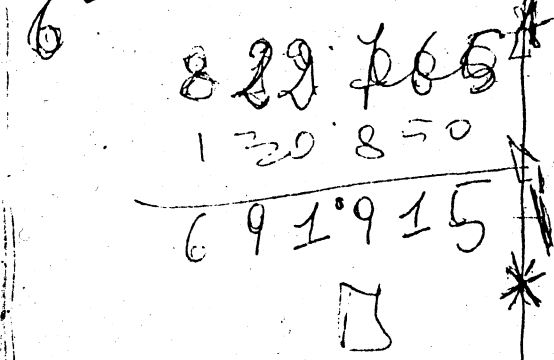 6
822.765
130.850
691.915